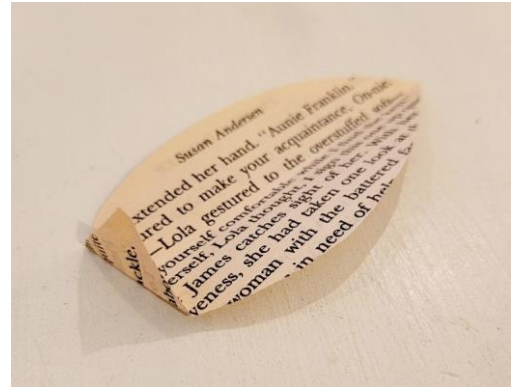 Susan Andersen
xtended her hand. "Aunie Franklin."
ured to make your acquaintance. On-nie.
-Lola gestured to the overstuffed
yourself comfortable
erself, Lola thought, I
James catches sight of her. With
veness, she had taken one look at
woman with the battered
in need of
ckle.